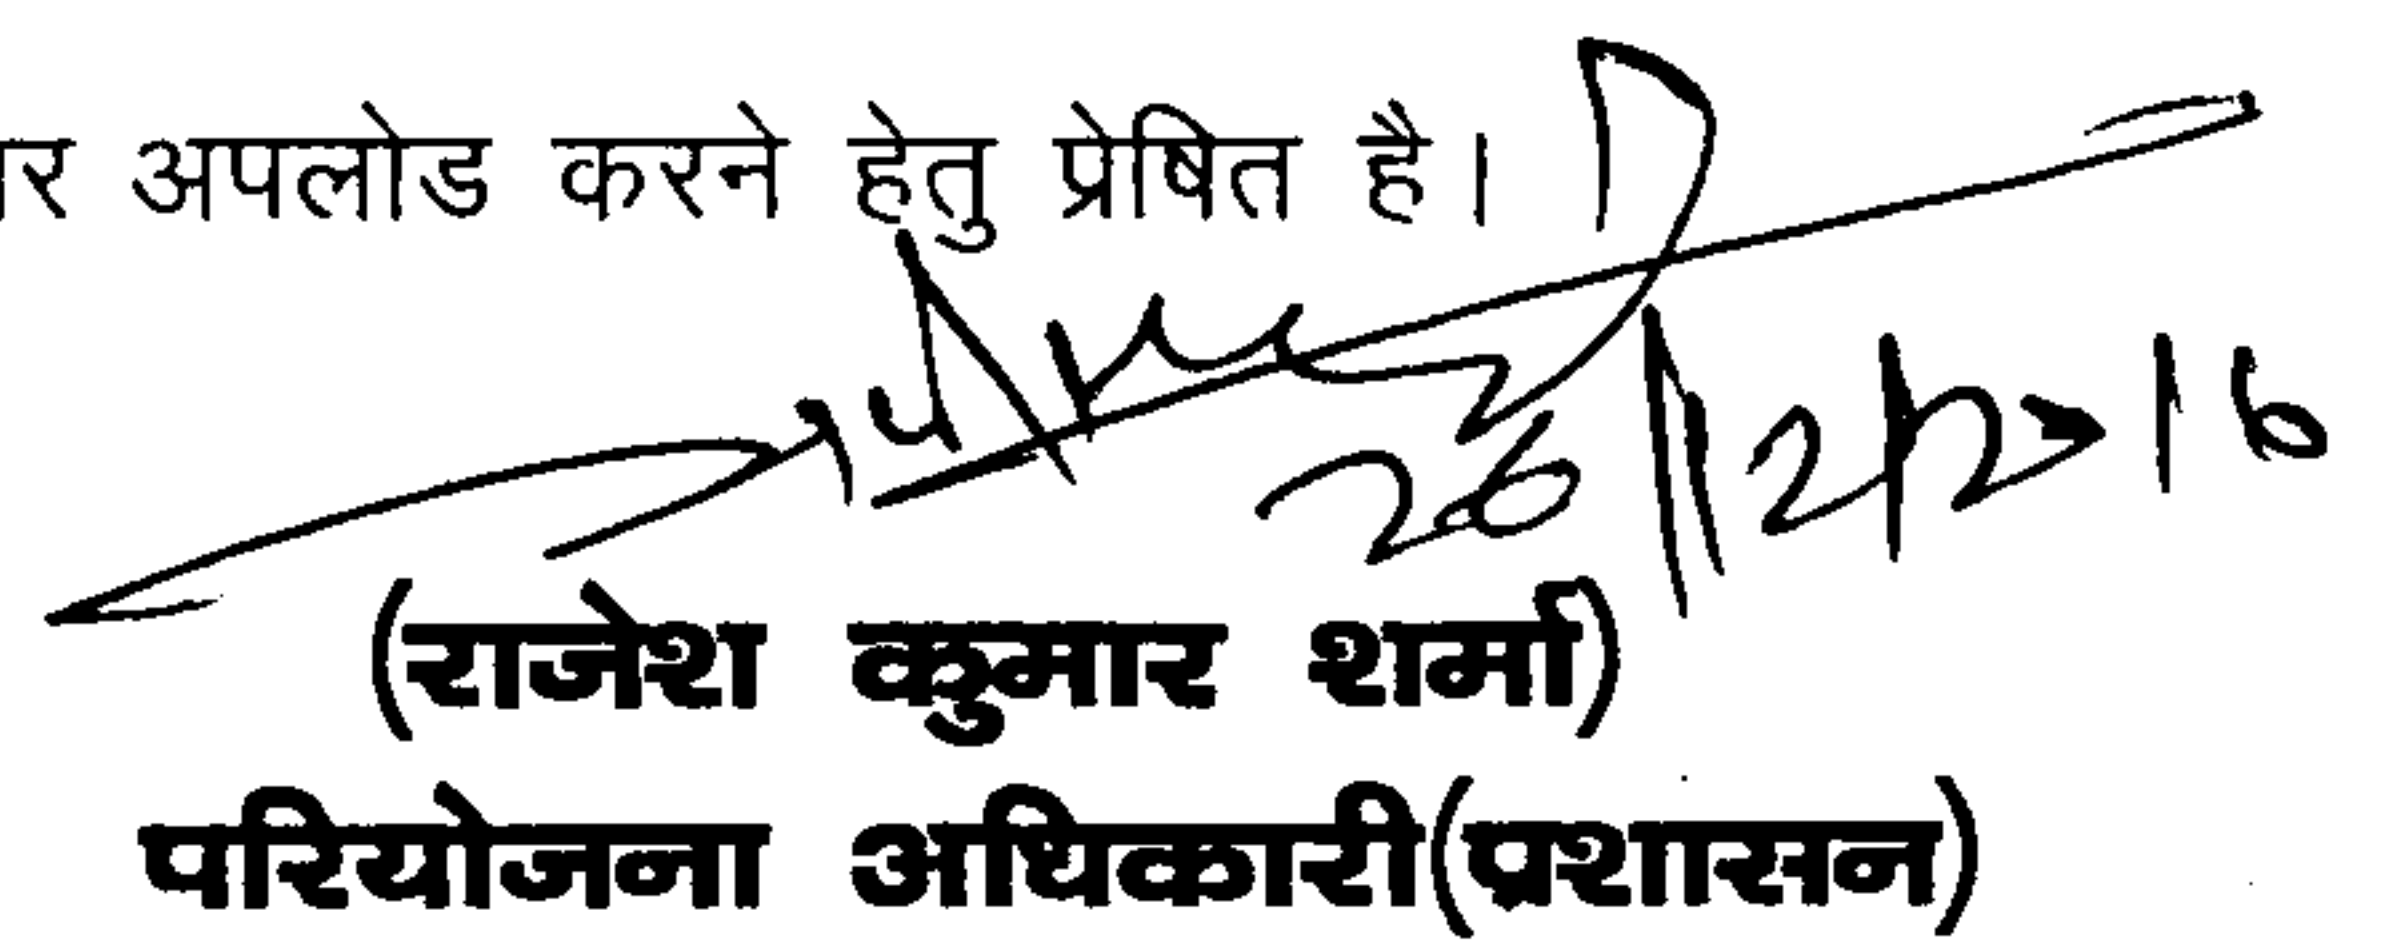 पर अपलोड करने हेतु प्रेषित है।
26/12/2016
(राजेश कुमार शर्मा)
परियोजना अधिकारी(प्रशासन)